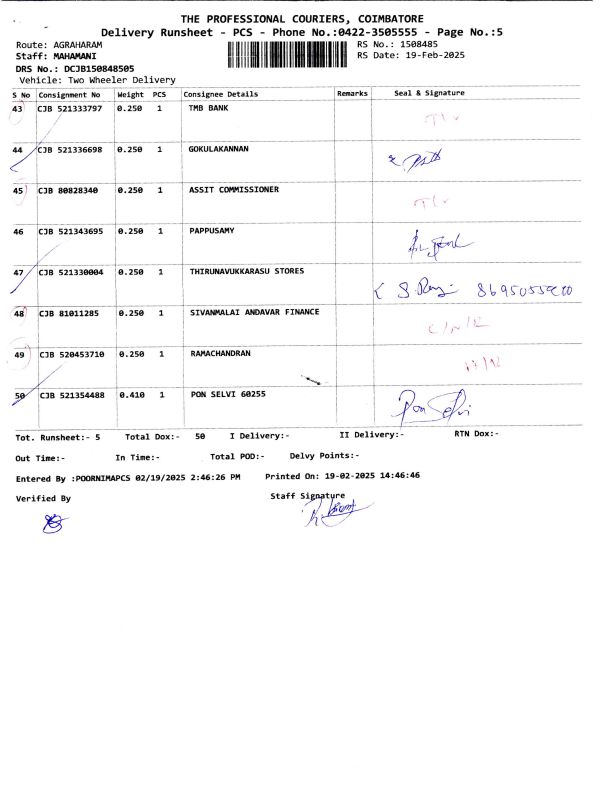 THE PROFESSIONAL COURIERS, COIMBATORE
Delivery Runsheet - PCS - Phone No.:0422-3505555 - Page No.:5
Route: AGRAHARAM RS No.: 1508485
Staff: MAHAMANI RS Date: 19-Feb-2025
DRS No.: DCJB150848505
Vehicle: Two Wheeler Delivery
S No Consignment No Weight PCS Consignee Details Remarks Seal & Signature
43 CJB 521333797 0.250 1 TMB BANK
44 CJB 521336698 0.250 1 GOKULAKANNAN
45 CJB 80828340 0.250 1 ASSIT COMMISSIONER
46 CJB 521343695 0.250 1 PAPPUSAMY
47 CJB 521330004 0.250 1 THIRUNAVUKKARASU STORES
48 CJB 81011285 0.250 1 SIVANMALAI ANDAVAR FINANCE
49 CJB 520453710 0.250 1 RAMACHANDRAN
50 CJB 521354488 0.410 1 PON SELVI 60255 Pon Selvi
Tot. Runsheet:- 5 Total Dox:- 50 I Delivery:- II Delivery:- RTN Dox:-
Out Time:- In Time:- Total POD:- Delvy Points:-
Entered By :POORNIMAPCS 02/19/2025 2:46:26 PM Printed On: 19-02-2025 14:46:46
Verified By Staff Signature